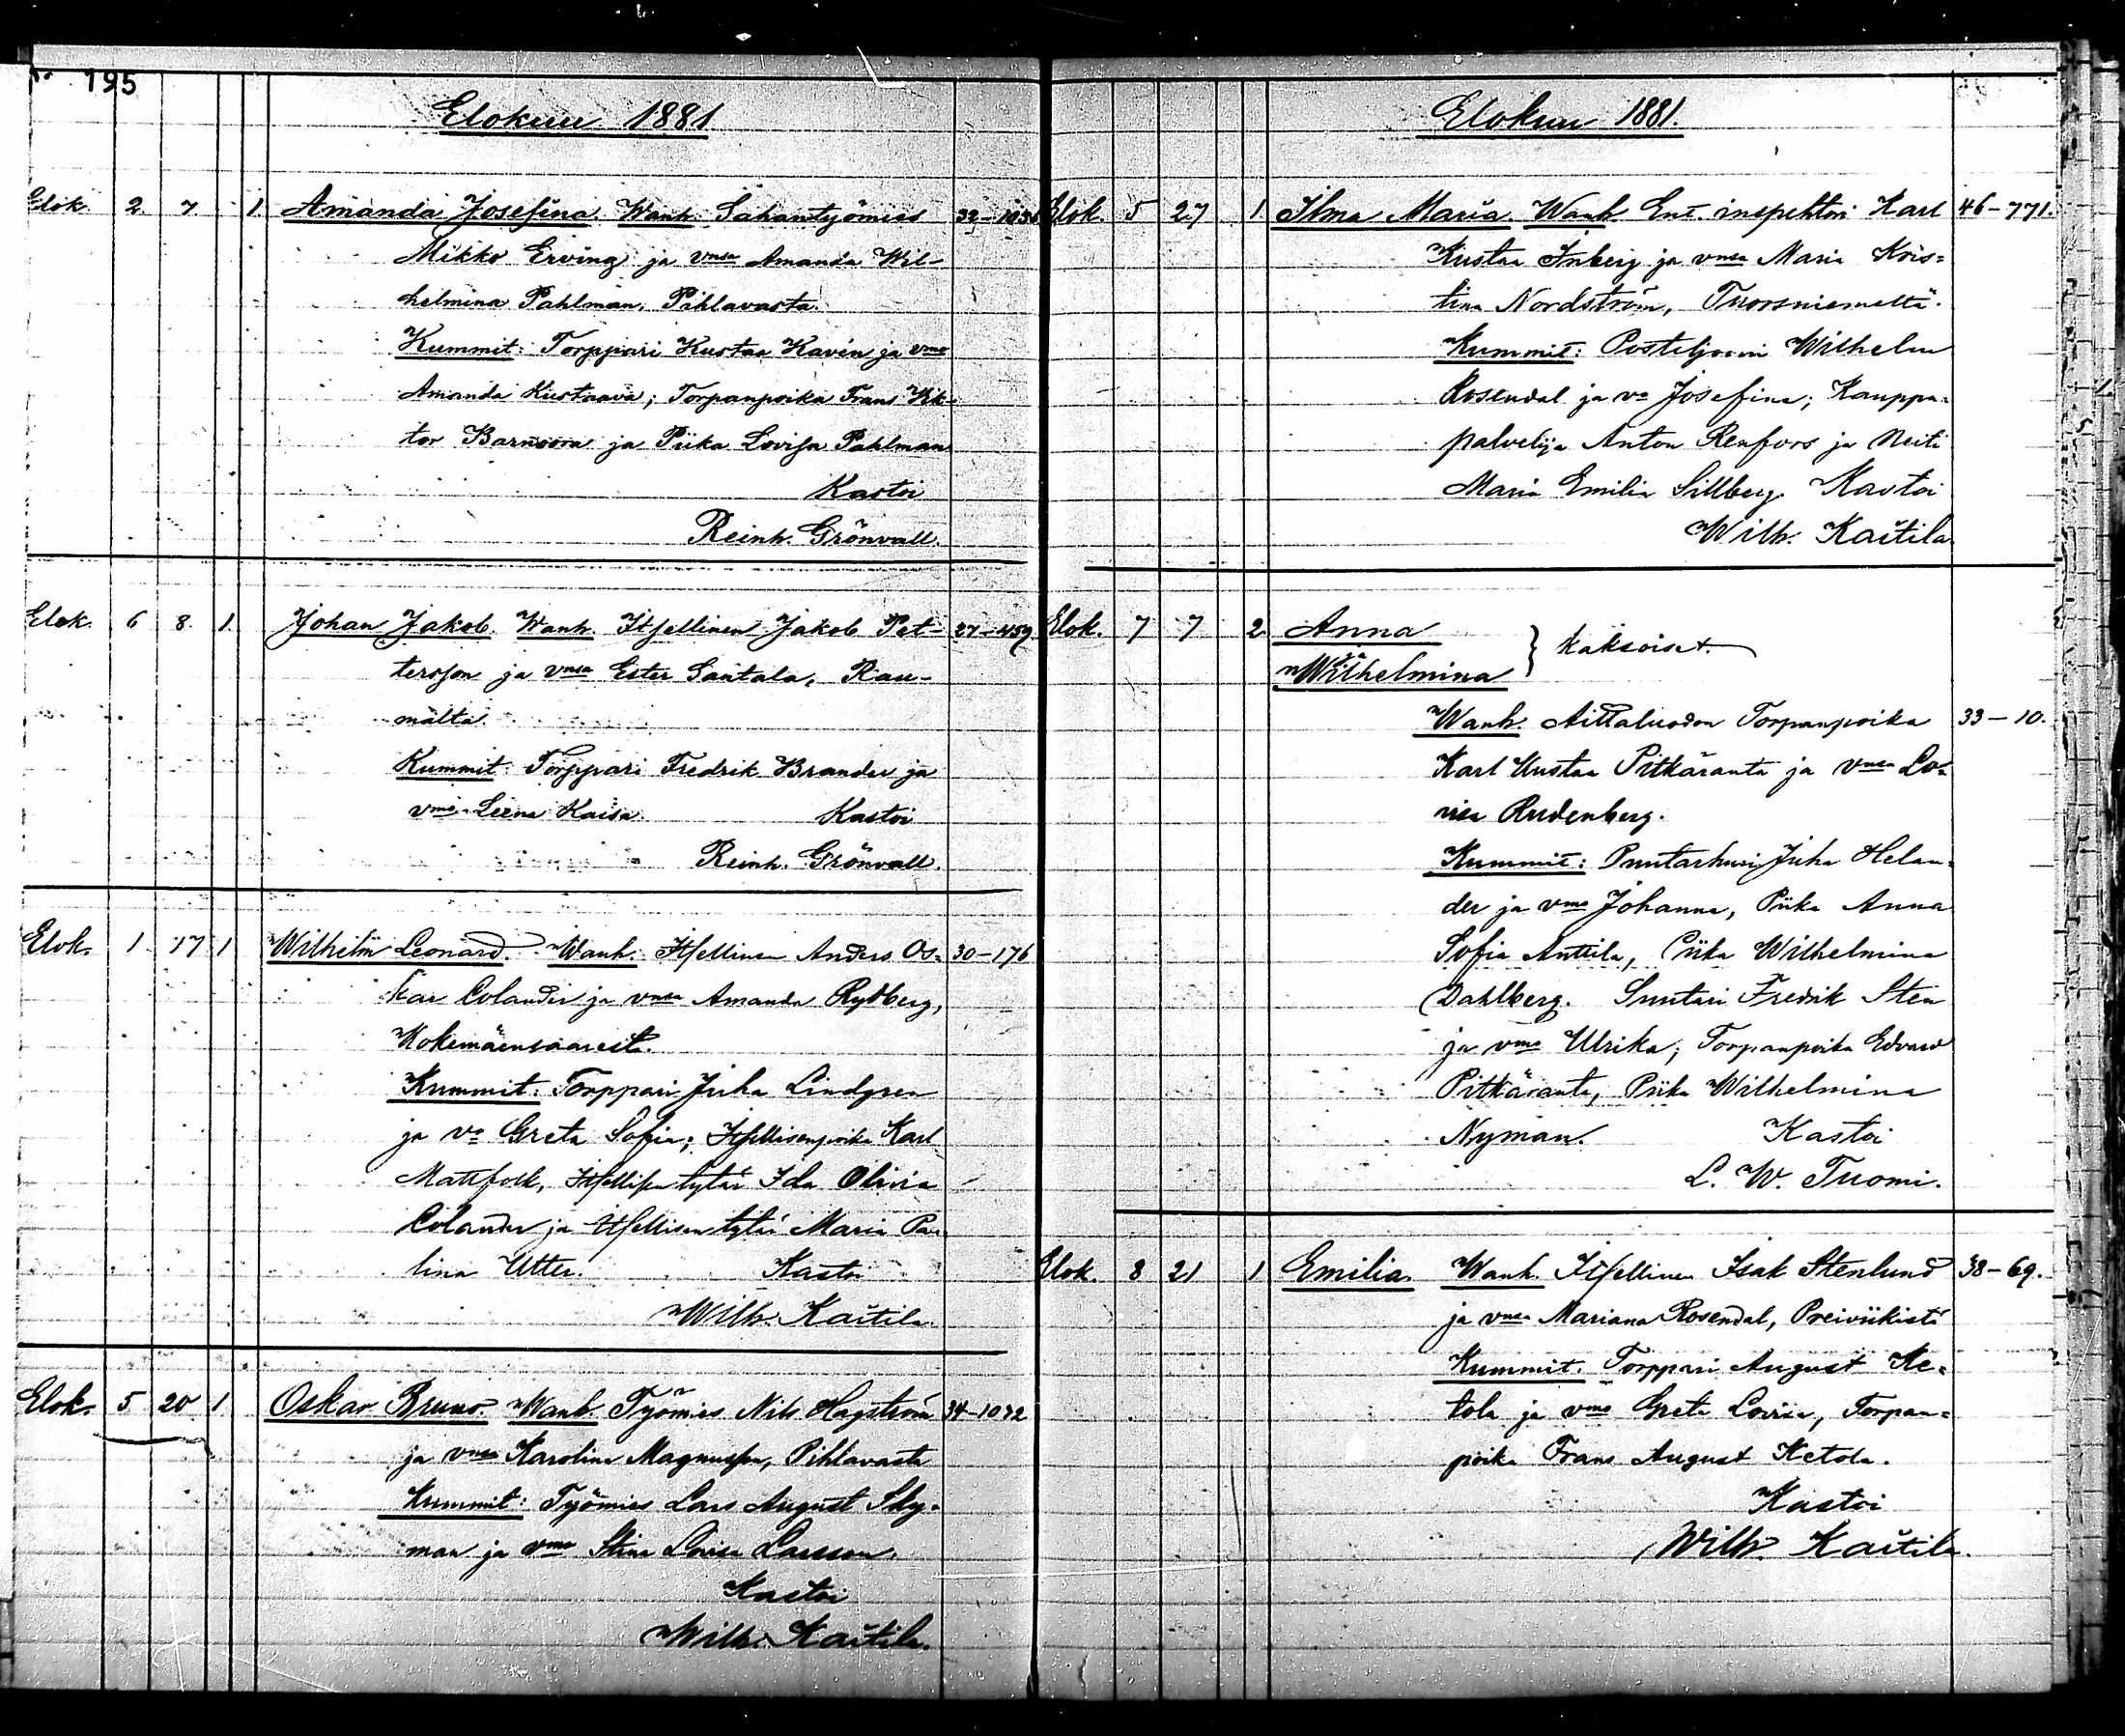 195
Elokuu 1881
Elok. 2 7 1 Amanda Josefina. Wanh. Sahantyömies
Mikko Erving ja vmsa Amanda Wil-
helmina Pahlman, Pihlavasta.
Kummit: Torppari Kustaa Kavén ja vmo
Amanda Kustaava; Torpanpoika Frans Vik-
tor ja Piika Lovisa Pahlman
Kastoi
Reinh. Grönvall.
Elok. 6 8 1. Johan Jakob. Wanh. Itsellinen Jakob Pet- 27-459
tersson ja vmsa Ester Santala, Rau-
malta.
Kummit: Torppari Fredrik Brander ja
vmo Leena Kaisa. Kastoi
Reinh. Grönvall.
Elok. 1 17 1 Wilhelm Leonard. Wanh. Itsellinen Anders Os- 30-176
kar Colander ja vmsa Amanda Rydberg,
Kokemäensaaresta.
Kummit: Torppari Juha Lindgren
ja vo Greta Sofia; Itsellisenpoika Karl
Mattfolk, Itsellisentytär Ida Olivia
Colander ja Itsellisentytär Maria Pau-
lina Utter. Kastoi
Wilh. Kaitila.
Elok. 5 20 1. Oskar Bruno. Wanh. Työmies Nils Hagström 34-1042
ja vmsa Karolina Magnusson, Pihlavasta
Kummit: Työmies Lars August
man ja vmo Stina Lovisa Larsson.
Kastoi
Wilh. Kaitila.
Elokuu 1881.
Elok. 5 27 1 Ilma Maria. Wanh. Ent. inspehtori Karl 46-771.
Kustaa Inberg ja vmsa Maria Kris-
tina Nordström, Tuorsniemeltä.
Kummit: Postiljooni Wilhelm
Rosendal ja vo Josefina; Kauppa-
palvelija Anton Renfors ja Neiti
Maria Emilia Sillberg. Kastoi
Wilh. Kaitila.
Elok. 7 7 2 Anna
ja } kaksoiset.
Wilhelmina
Wanh. Aittaluodon Torpanpoika 33-10.
Karl Kustaa Pitkäranta ja vmsa Lo-
visa Rudenberg.
Kummit: Puutarhuri Juha Helan-
der ja vmo Johanna, Piika Anna
Sofia Anttila, Piika Wilhelmina
Dahlberg. Suutari Fredrik Sten
ja vmo Ulrika; Torpanpoika Edvard
Pitkäranta, Piika Wilhelmina
Nyman. Kastoi
L. W. Tuomi.
Elok. 8 21 1 Emilia. Wanh. Itsellinen Isak Stenlund 38-69.
ja vmsa Mariana Rosendal, Preiviikistä
Kummit. Torppari August Ke-
tola ja vmo Greta Lovisa, Torpan-
poika Frans August Ketola.
Kastoi
Wilh. Kaitila.